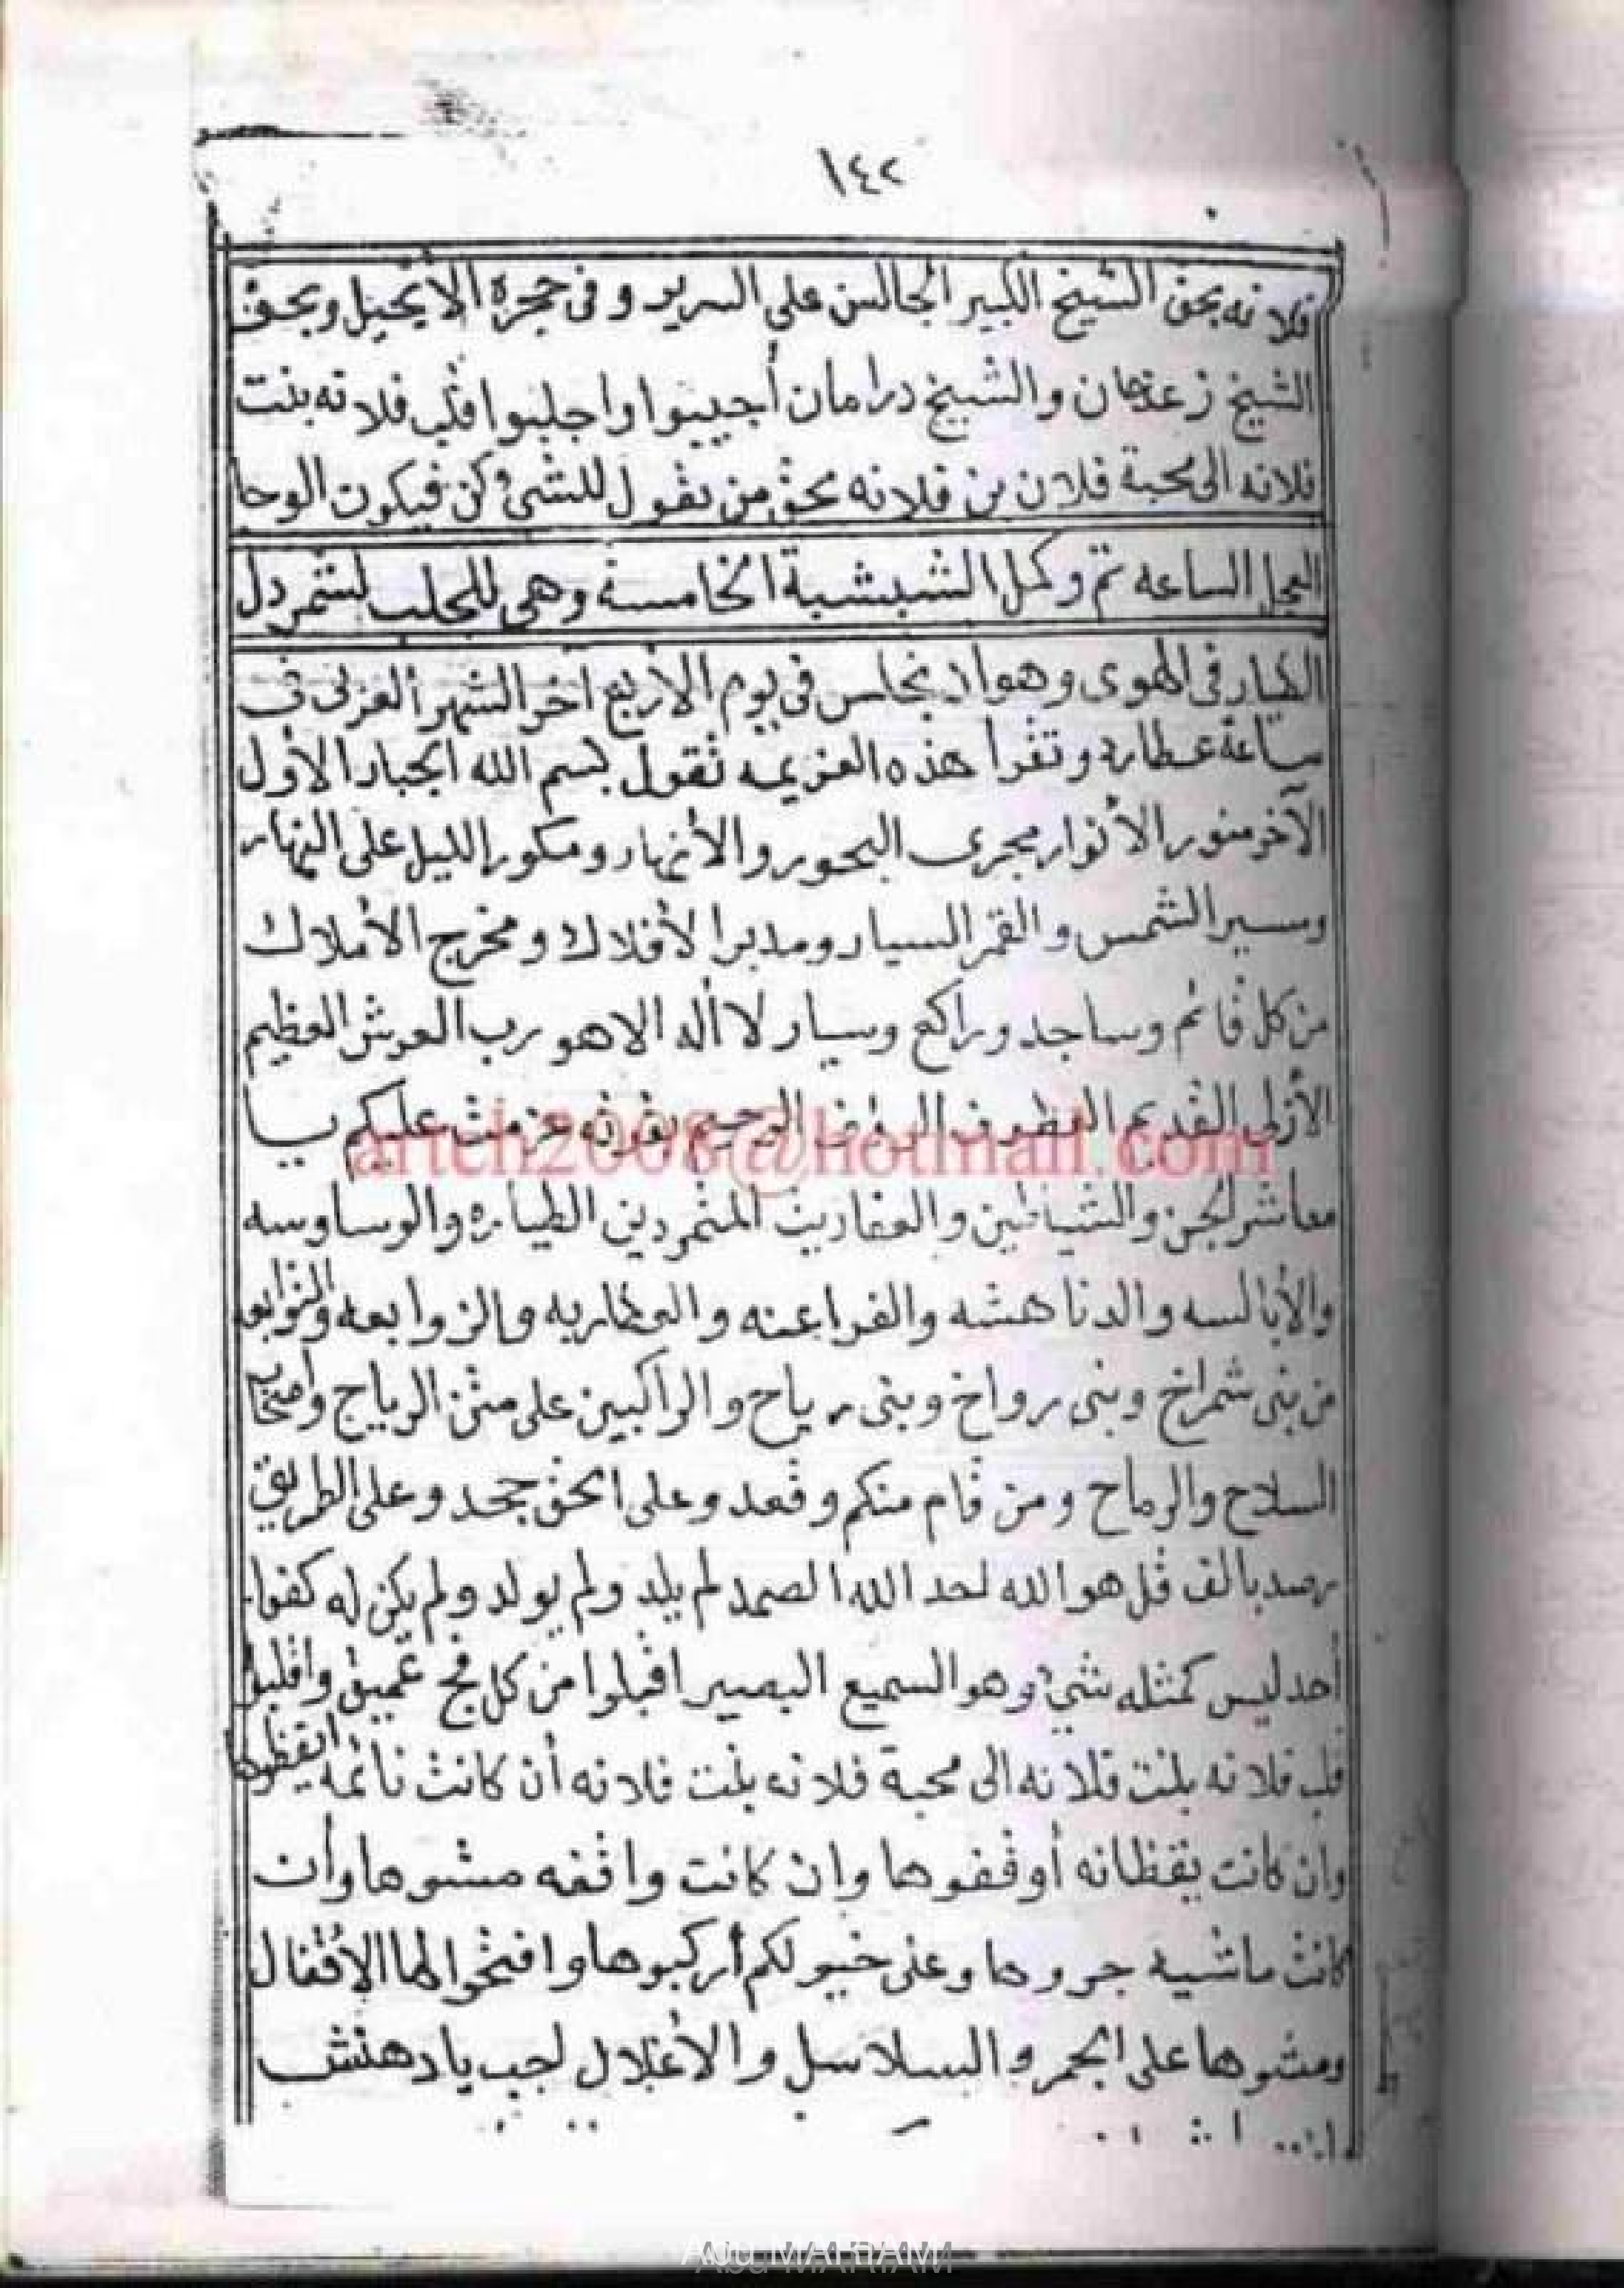 ١٤٢
فلانه بحق الشيخ الكبير الجالس على السرير وفى حجرة الأنجيل وبحق
الشيخ زعذهان والشيخ درامان أجيبوا واجلبوا قلب فلانه بنت
فلانه الى محبة فلان بن فلانه بحق من يقول للشئ كن فيكون الوحا
العجل الساعه تم وكمل الشبشبة الخامسة وهى للجلب لشمردل
الطيار فى الهوى وهوا فى يوم الأربع آخر الشهر العربى فى
ساعة عطارد وتقرأ هذه العزيمه تقول بسم الله الجبار الأول
الآخر منور الأنوار مجرى البحور والأنهار ومكور الليل على النهار
ومسير الشمس والقمر السيار ومدبر الأفلاك ومخرج الأملاك
من كل قائم وساجد وراكع وسيار لا أله الا هو رب العرش العظيم
الأزلى القديم الرحيم عزمت عليكم يا
معاشر الجن والشياطين والعفاريت المتمردين الطياره والوساوسه
والأبالسه والدناهشه والفراعنه والعطاريه والزوابعه والتوابعه
من بنى شمراخ وبنى رواخ وبنى رياح والراكبين على متن الرياح وأصحاب
السلاح والرماح ومن قام منكم وقعد وعلى الحق جحد وعلى الطريق
رصد بالف قل هو الله احد الله الصمد لم يلد ولم يولد ولم يكن له كفوا
أحد ليس كمثله شئ وهو السميع البصير اقبلوا من كل فج عميق واقلبوا
قلب فلانه بنت فلانه الى محبة فلانه بنت فلانه أن كانت نائمه ايقظوها
وان كانت يقظانه أوقفوها وان كانت واقفه مشوها وأن
كانت ماشيه جروها وعلى خيولكم أركبوها وافتحوا لها الأقفال
ومشوها على الجمر والسلاسل والأغلال اجب يا دهنش
artch2008@hotmail.com
Abu MARIAM